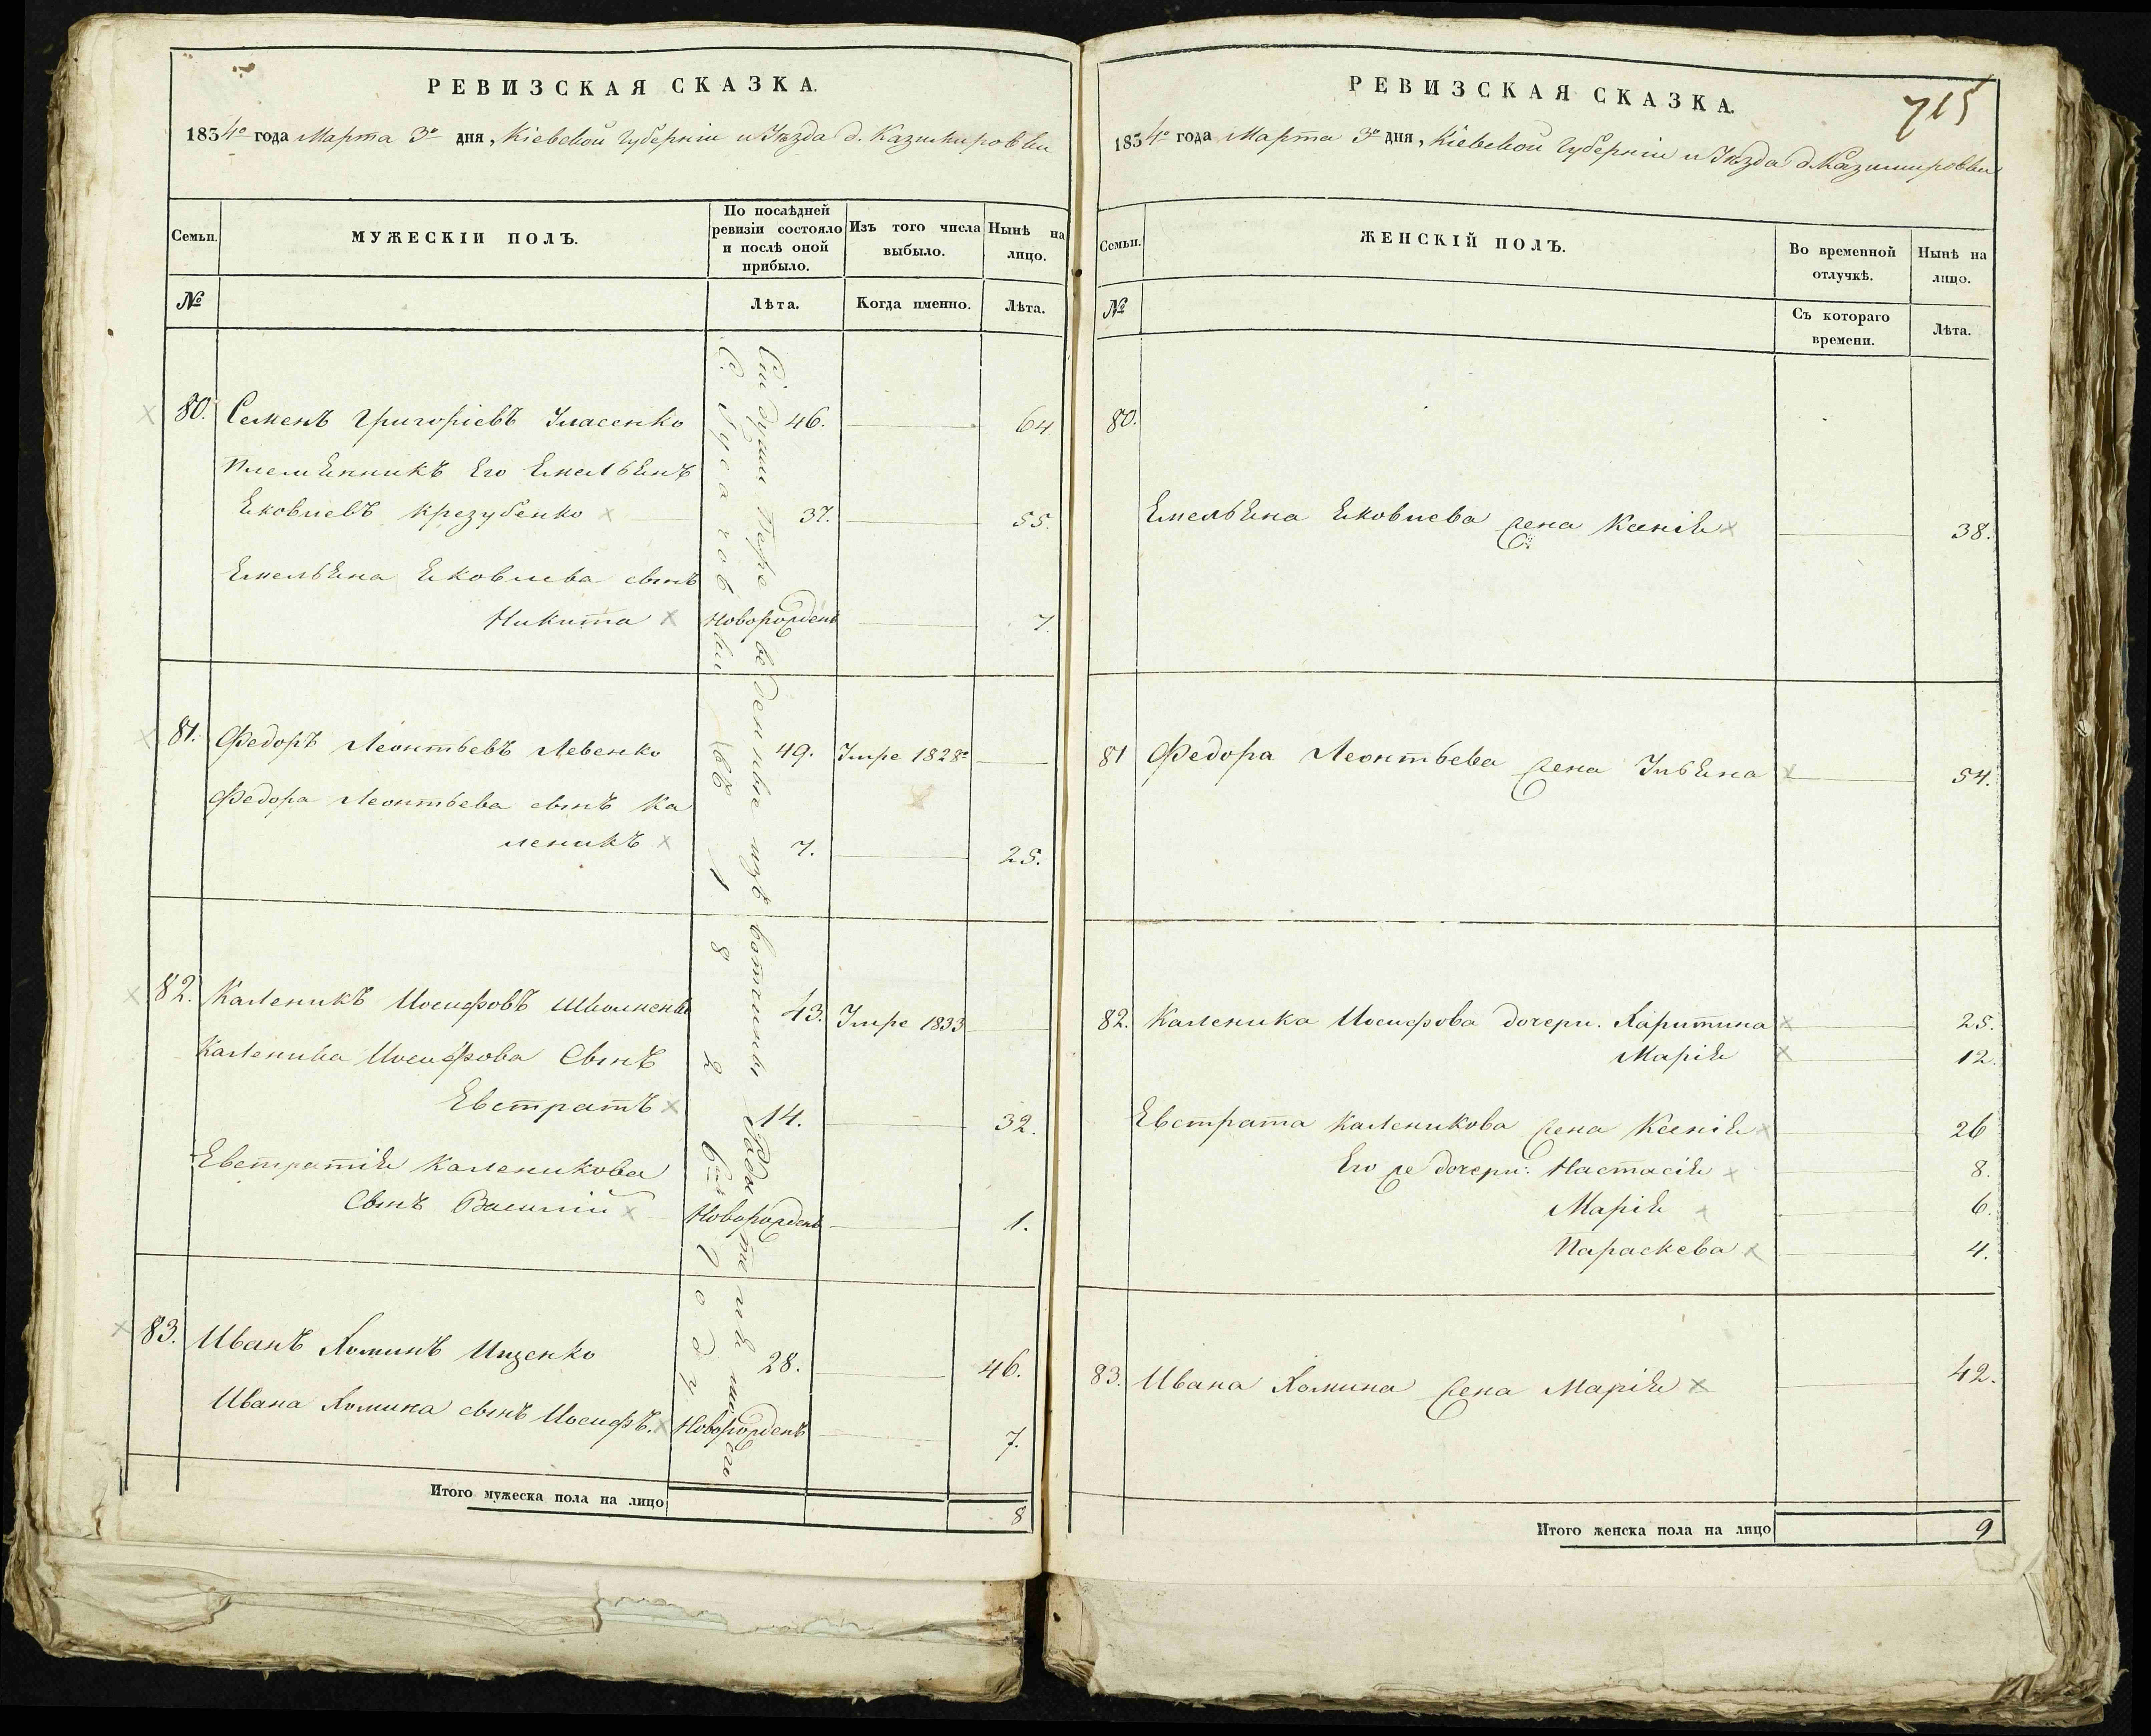 РЕВИЗСКАЯ СКАЗКА.
1834го года Марта 3го дня, Кіевской Губерніи и Уѣзда д. Казимировки
Семьи.
МУЖЕСКІЙ ПОЛЪ.
По послѣдней ревизіи состояло и послѣ оной прибыло.
Изъ того числа выбыло.
Нынѣ на лицо.
№
Лѣта.
Когда именно.
Лѣта.
Сіи души переведенные изъ вотчины
80. Семенъ Григоріевъ 46. 64
Племянникъ Его Емельянъ
Яковлевъ Крезубенко 37. 55.
Емельяна Яковлева сынъ
Никита Новорожденъ 7.
81. Федоръ Леонтьевъ Левенко 49. Умре 1828го
Федора Леонтьева сынъ Ка
леникъ 7. 25.
82. Каленикъ Иосифовъ 43. Умре 1833
Каленика Иосифова Сынъ
Евстратъ 14. 32.
Евстратія Каленикова
Сынъ Василій Новорожденъ 1.
83. Иванъ Хоминъ Ищенко 28. 46.
Ивана Хомина сынъ Иосифъ. Новорожденъ 7.
Итого мужеска пола на лицо 8
РЕВИЗСКАЯ СКАЗКА.
715
1834го года Марта 3го дня, Кіевской Губерніи и Уѣзда д. Казимировки
Семьи.
ЖЕНСКІЙ ПОЛЪ.
Во временной отлучкѣ.
Нынѣ на лицо.
№
Съ котораго времени.
Лѣта.
80.
Емельяна Яковлева жена Ксенія 38.
81 Федора Леонтьева жена Ульяна 54.
82. Каленика Иосифова дочери. Харитина 25.
Марія 12.
Евстрата Каленикова жена Ксенія 26
Его же дочери: Настасія 8.
Марія 6.
Параскева 4.
83. Ивана Хомина жена Марія 42.
Итого женска пола на лицо 9